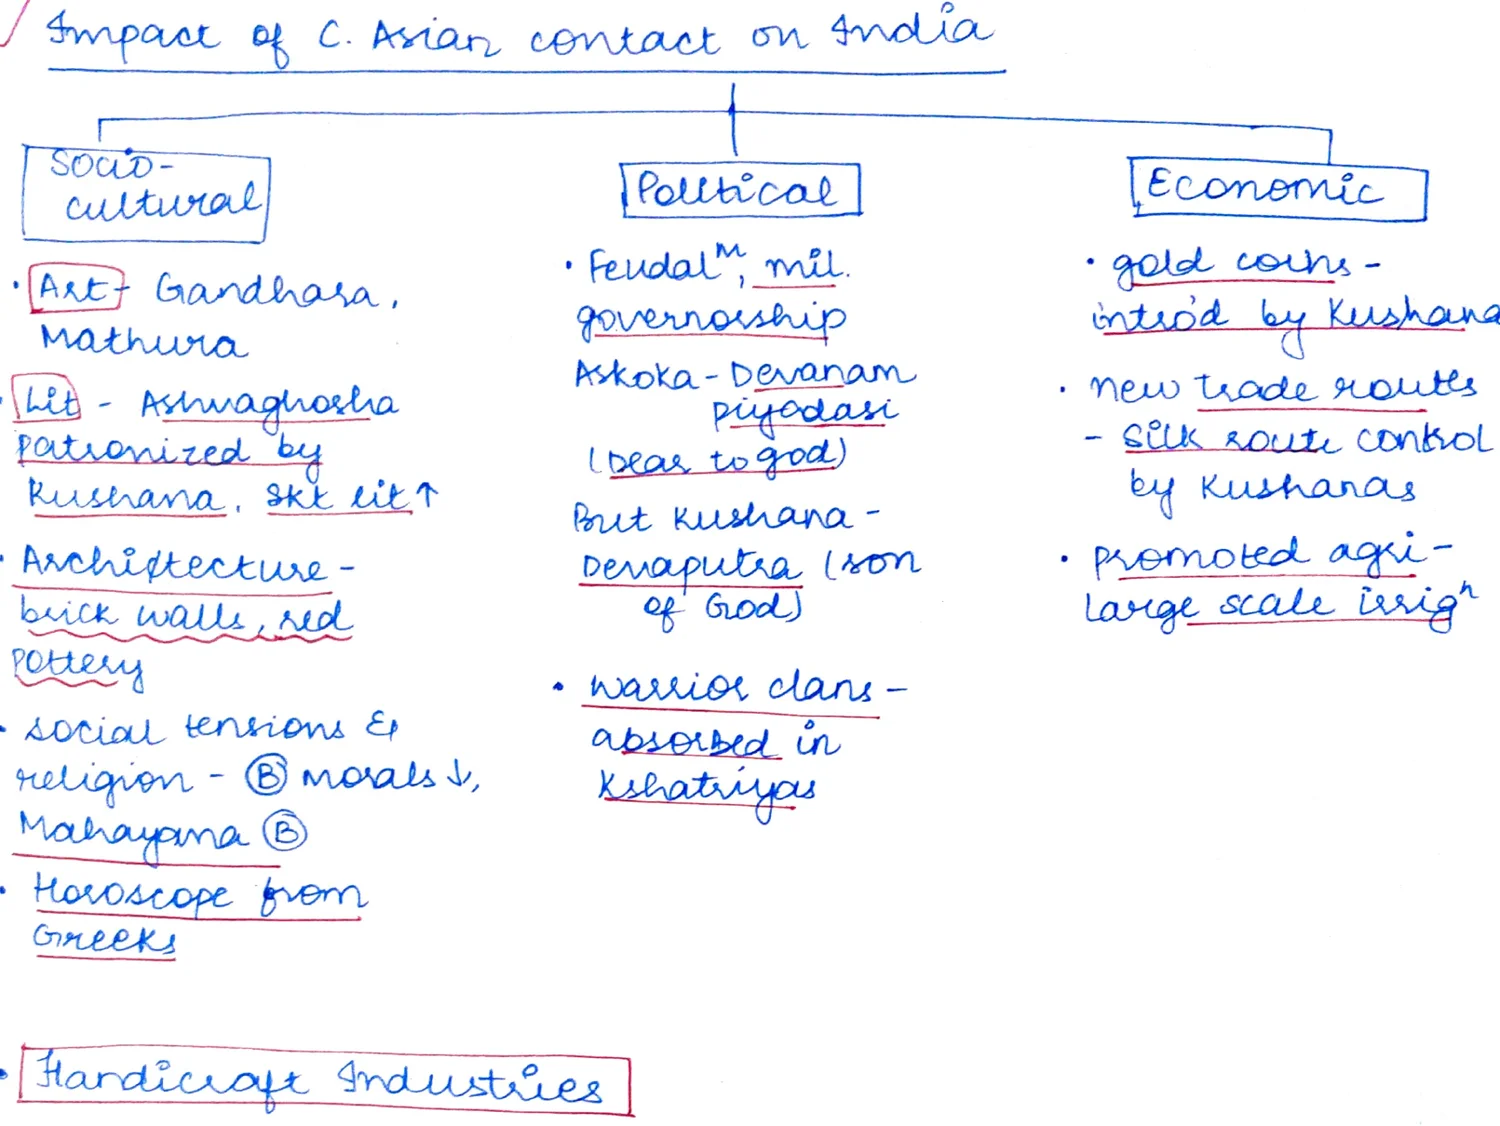 Impact of C. Asian contact on India
Socio-
cultural
• Art - Gandhara,
Mathura
• Lit - Ashwaghosha
patronized by
Kushana. Skt lit ↑
• Architecture -
brick walls, red
pottery
• social tensions &
religion - Ⓑ morals ↓,
Mahayana Ⓑ
• Horoscope from
Greeks
Political
• Feudalᵐ, mil.
governorship
Askoka - Devanam
piyadasi
(Dear to god)
But Kushana -
Devaputra (son
of God)
• warrior clans -
absorbed in
Kshatriyas
Economic
• gold coins -
intro'd by Kushana
• new trade routes
- silk route control
by Kushanas
• promoted agri -
large scale irrigⁿ
• Handicraft Industries